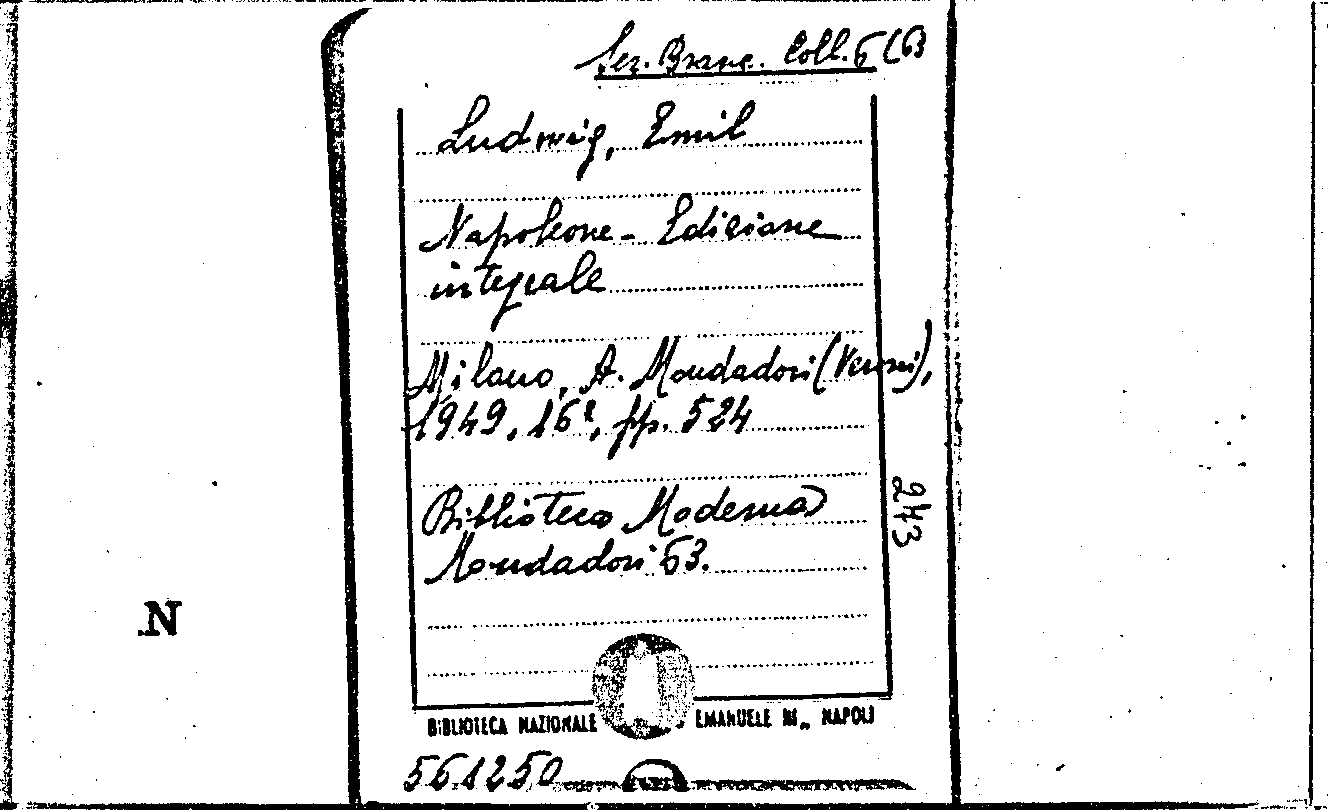 Sez. Branc. Coll. 6 (63
Ludwig, Emil
Napoleone - Edizione
integrale
Milano, A. Mondadori (Verona),
1949, 16º, pp. 524
243
Biblioteca Moderna
Mondadori 63.
N
BIBLIOTECA NAZIONALE EMANUELE III NAPOLI
561250